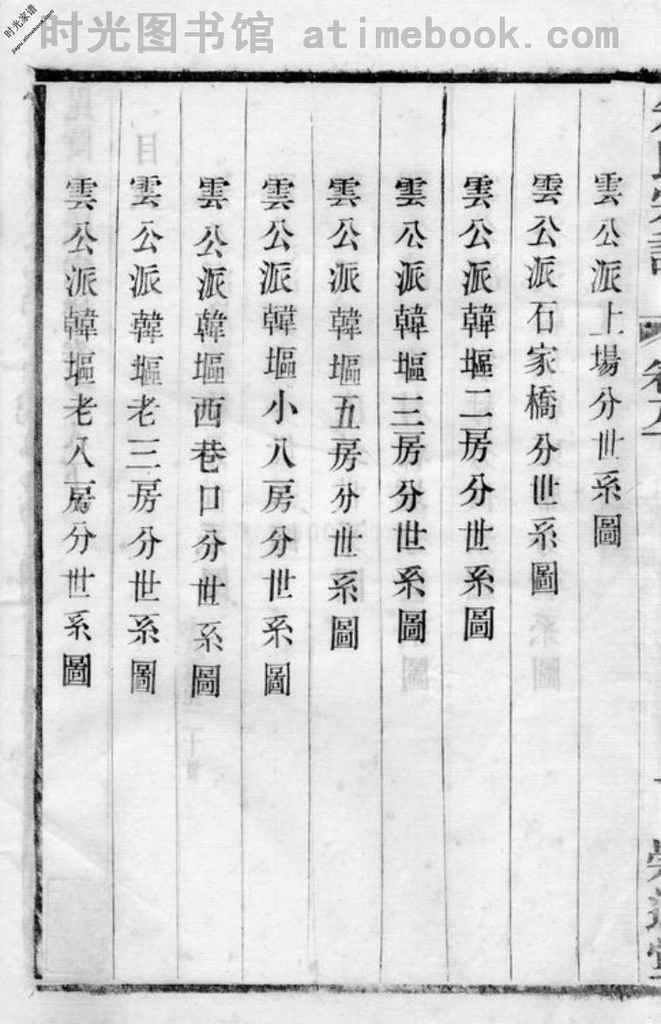 时光图书馆 atimebook.com
时光家谱
jiapu.atimebook.com
雲公派上塲分世系圖
雲公派石家橋分世系圖
雲公派韓塸二房分世系圖
雲公派韓塸三房分世系圖
雲公派韓塸五房分世系圖
雲公派韓塸小八房分世系圖
雲公派韓塸西巷口分世系圖
雲公派韓塸老三房分世系圖
雲公派韓塸老八房分世系圖